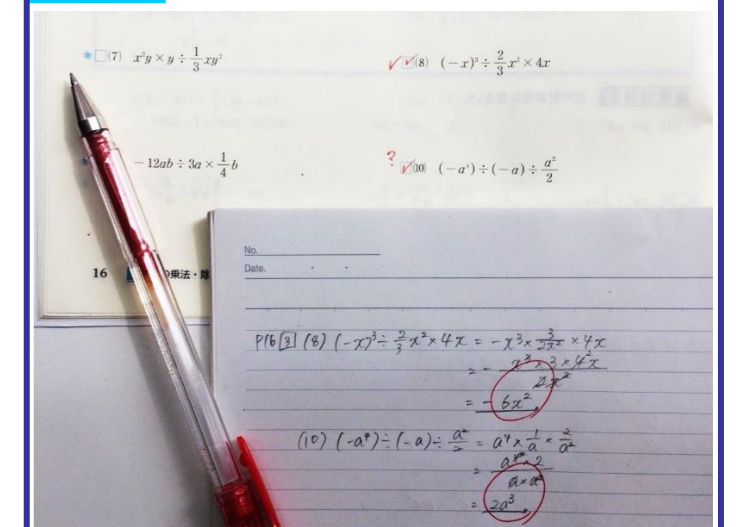 (7) x²y×y÷1/3xy²
(8) (−x)³÷2/3x²×4x
−12ab÷3a×1/4b
? (10) (−a⁴)÷(−a)÷a²/2
No.
Date.
16 の乗法・除
P16 [3] (8) (−x)³÷2/3x²×4x = −x³×3/2x²×4x
= −x³×3×4²x/2x²
= −6x²
(10) (−a⁴)÷(−a)÷a²/2 = a⁴×1/a×2/a²
= a⁴×2/a×a²
= 2a³